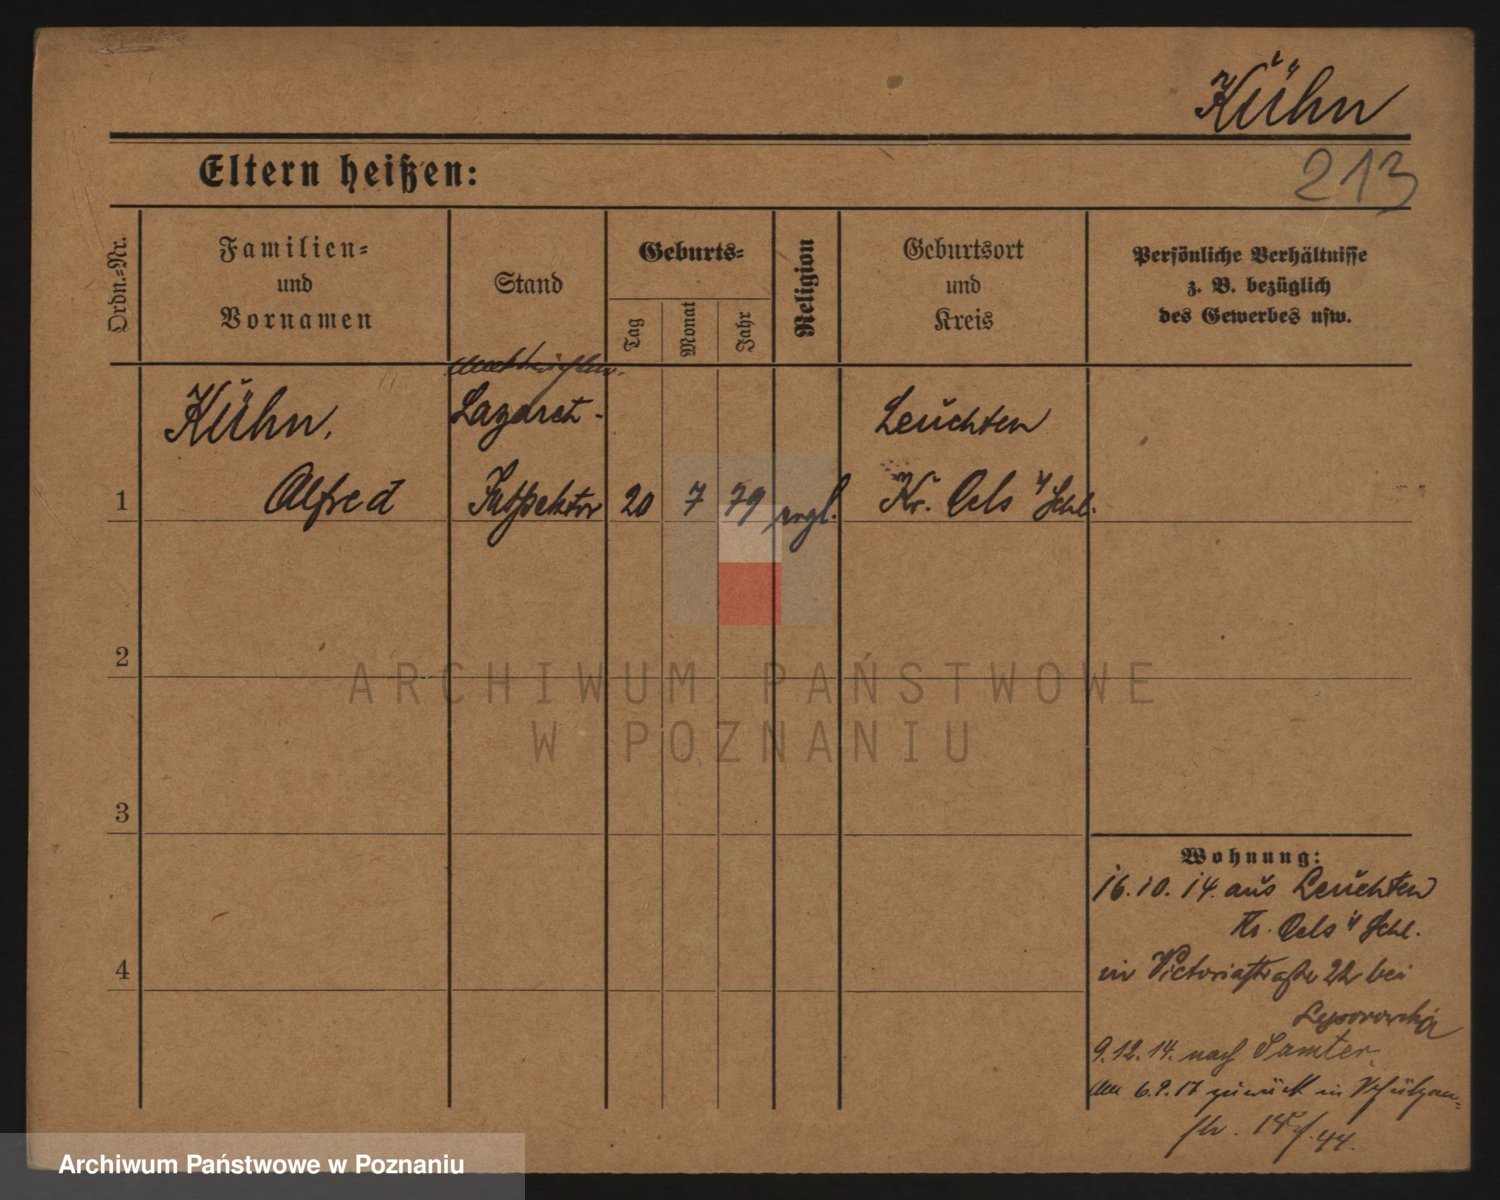 Kühn
213
Eltern heißen:
Ordn.-Nr.
Familien-
und
Vornamen
Stand
Geburts-
Tag
Monat
Jahr
Religion
Geburtsort
und
Kreis
Persönliche Verhältnisse
z. B. bezüglich
des Gewerbes usw.
Kühn,
Alfred
Lazaret-
Inspektor
20
7
79
evgl.
Leuchten
Kr. Oels i/Schl.
1
2
3
4
ARCHIWUM PAŃSTWOWE
W POZNANIU
Wohnung:
16.10.14. aus Leuchten
Kr. Oels i/Schl.
in Victoriastraße 22 bei
9.12.14. nach Samter.
6.9.17 zurück in Schützen-
str.
Archiwum Państwowe w Poznaniu